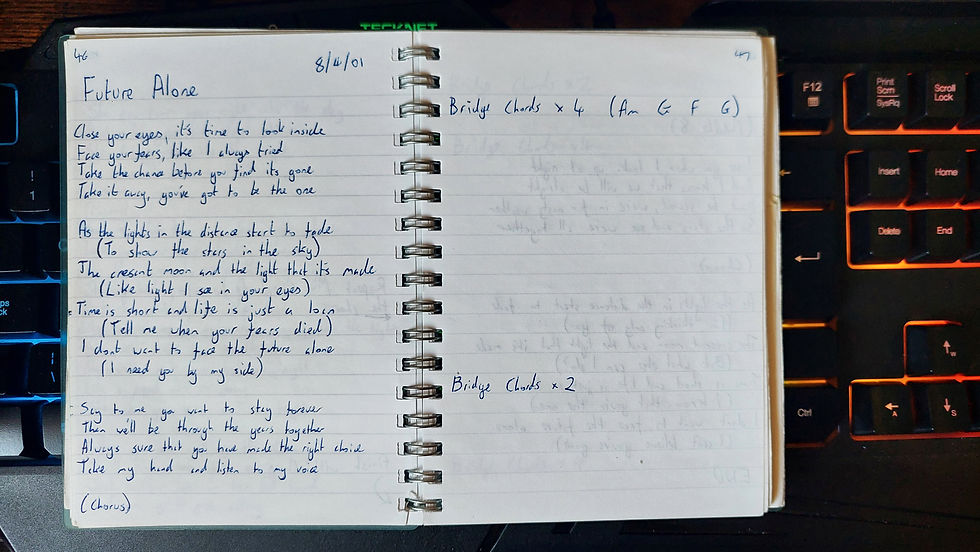 TECKNET
46
8/4/01
Future Alone
Close your eyes, it's time to look inside
Face your fears, like I always tried
Take the chance before you find it's gone
Take it away, you've got to be the one
As the lights in the distance start to fade
(To show the stars in the sky)
The cresent moon and the light that it's made
(Like light I see in your eyes)
Time is short and life is just a loan
(Tell me when your fears died)
I dont want to face the future alone
(I need you by my side)
Say to me you want to stay forever
Then we'll be through the years together
Always sure that you have made the right choice
Take my hand and listen to my voice
(Chorus)
47
Bridge Chords x 4 (Am G F G)
Bridge Chords x 2
!
1
F12
Print
Scrn
SysRq
Scroll
Lock
Insert
Home
Delete
End
Ctrl
W
A
S